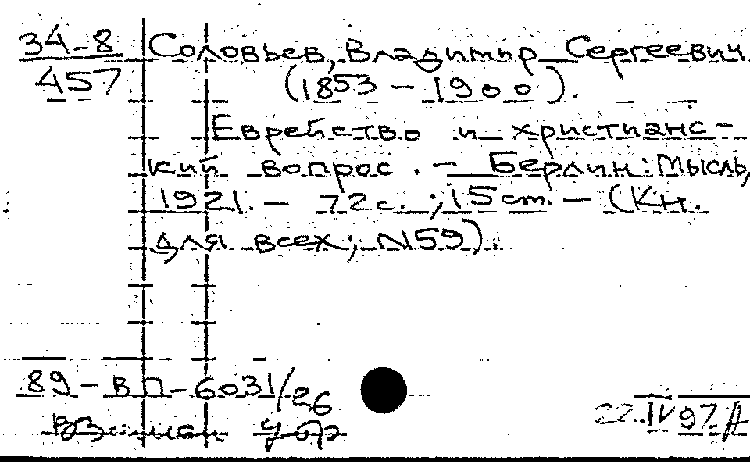 34-8
457
Соловьев, Владимир Сергеевич
(1853 - 1900).
Еврейство и христианс-
кий вопрос. - Берлин: Мысль,
1921. - 72с.; 15cm. - (Кн.
для всех; N59).
89-ВП-6031/26
Взамен
22.IV 97